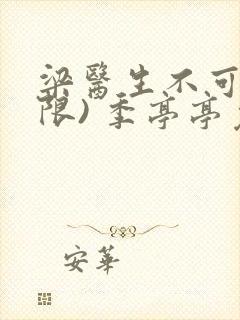 梁醫生不可
限）季亭亭
安華